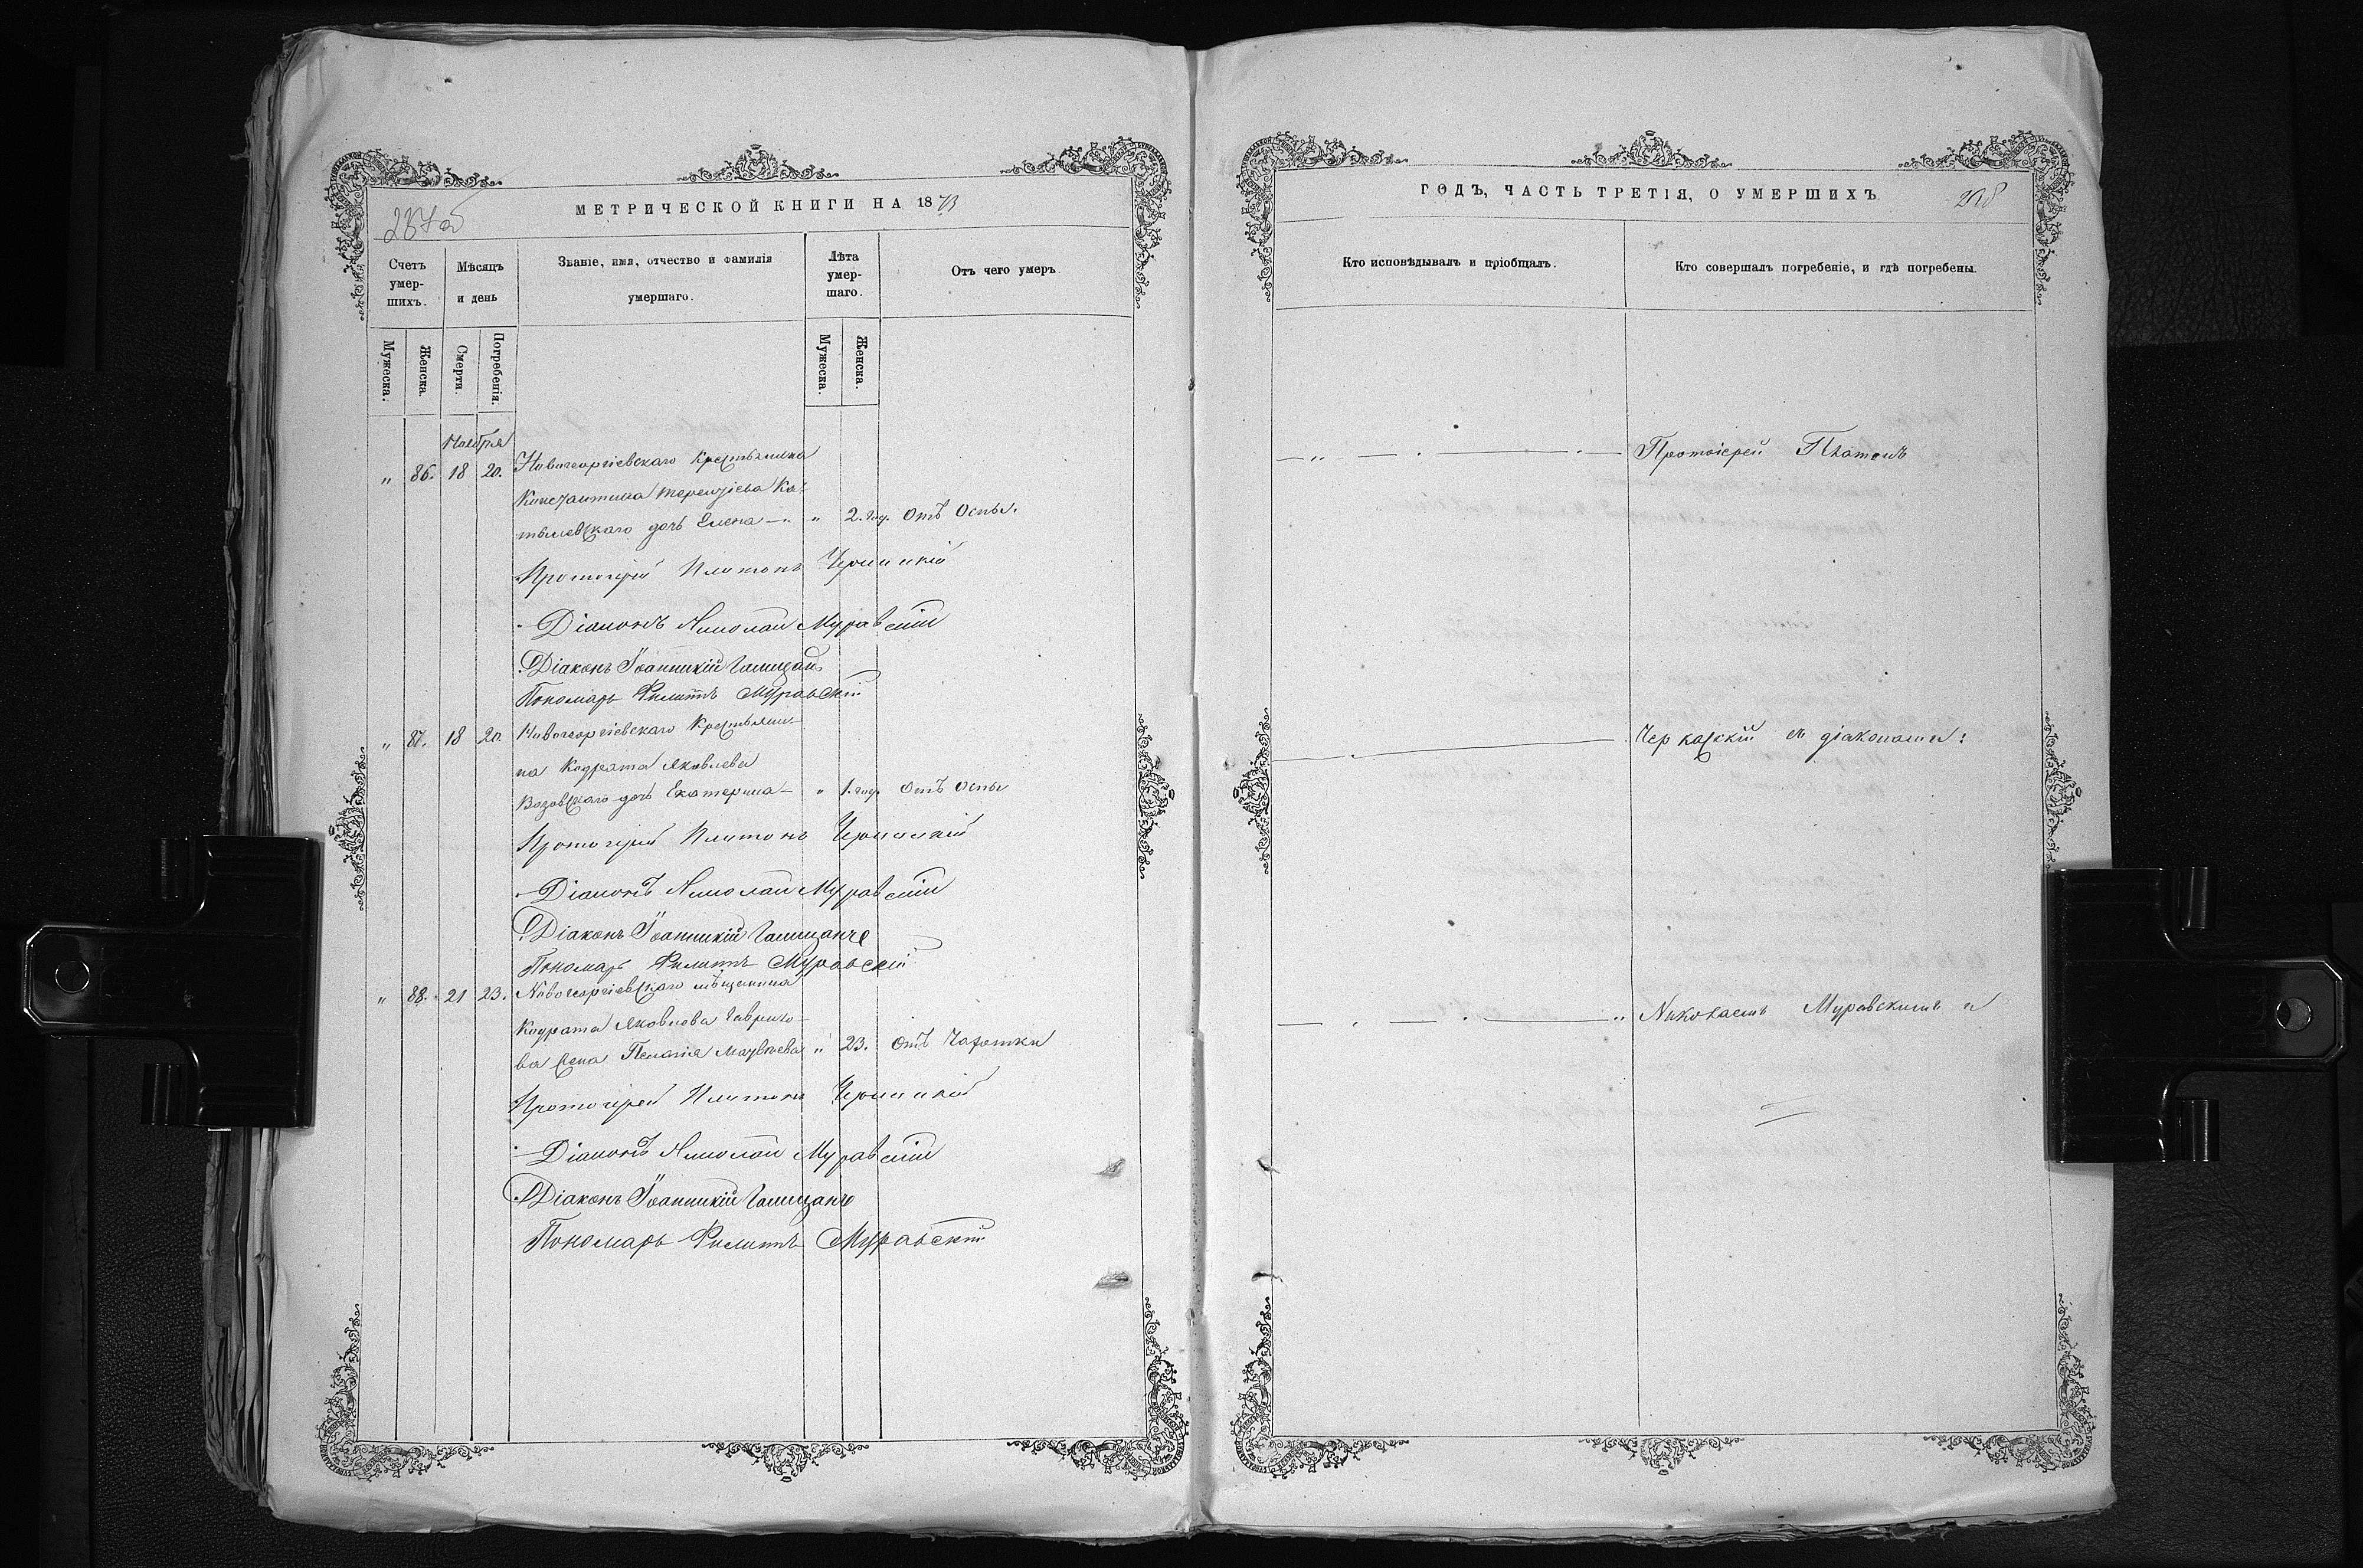 МЕТРИЧЕСКОЙ КНИГИ НА 1873
Счетъ умер-шихъ.
Мѣсяцъ и день
Званіе, имя, отчество и фамилія умершаго.
Лѣта умер-шаго.
Отъ чего умеръ.
Мужеска.
Женска.
Смерти.
Погребенія.
Мужеска.
Женска.
Ноября
" 86. 18 20. Новогеоргіевскаго Крестьянина
Константина Терентіева Ко-
тылевскаго дочь Елена " 2. год. отъ оспы.
Протоіерей Платонъ Черкасскій
Діаконъ Николай Муравскій
Діаконъ Іоанникій
Пономарь Филиппъ Муравскій
" 87. 18 20. Новогеоргіевскаго Крестьяни-
на Кодрата Яковлева
Возовскаго дочь Екатерина " 1. год. отъ оспы
Протоіерей Платонъ Черкасскій
Діаконъ Николай Муравскій
Діаконъ Іоанникій
Пономарь Филиппъ Муравскій
" 88. 21 23. Новогеоргіевскаго мѣщанина
Кодрата Яковлева Гаврило-
ва жена Пелагія Матвѣева " 23. отъ Чахотки
Протоіерей Платонъ Черкасскій
Діаконъ Николай Муравскій
Діаконъ Іоанникій
Пономарь Филиппъ Муравскій
ГОДЪ, ЧАСТЬ ТРЕТІЯ, О УМЕРШИХЪ
Кто исповѣдывалъ и пріобщалъ.
Кто совершалъ погребеніе, и гдѣ погребены.
Протоіерей Платонъ
Черкасскій съ діаконами:
Николаемъ Муравскимъ и